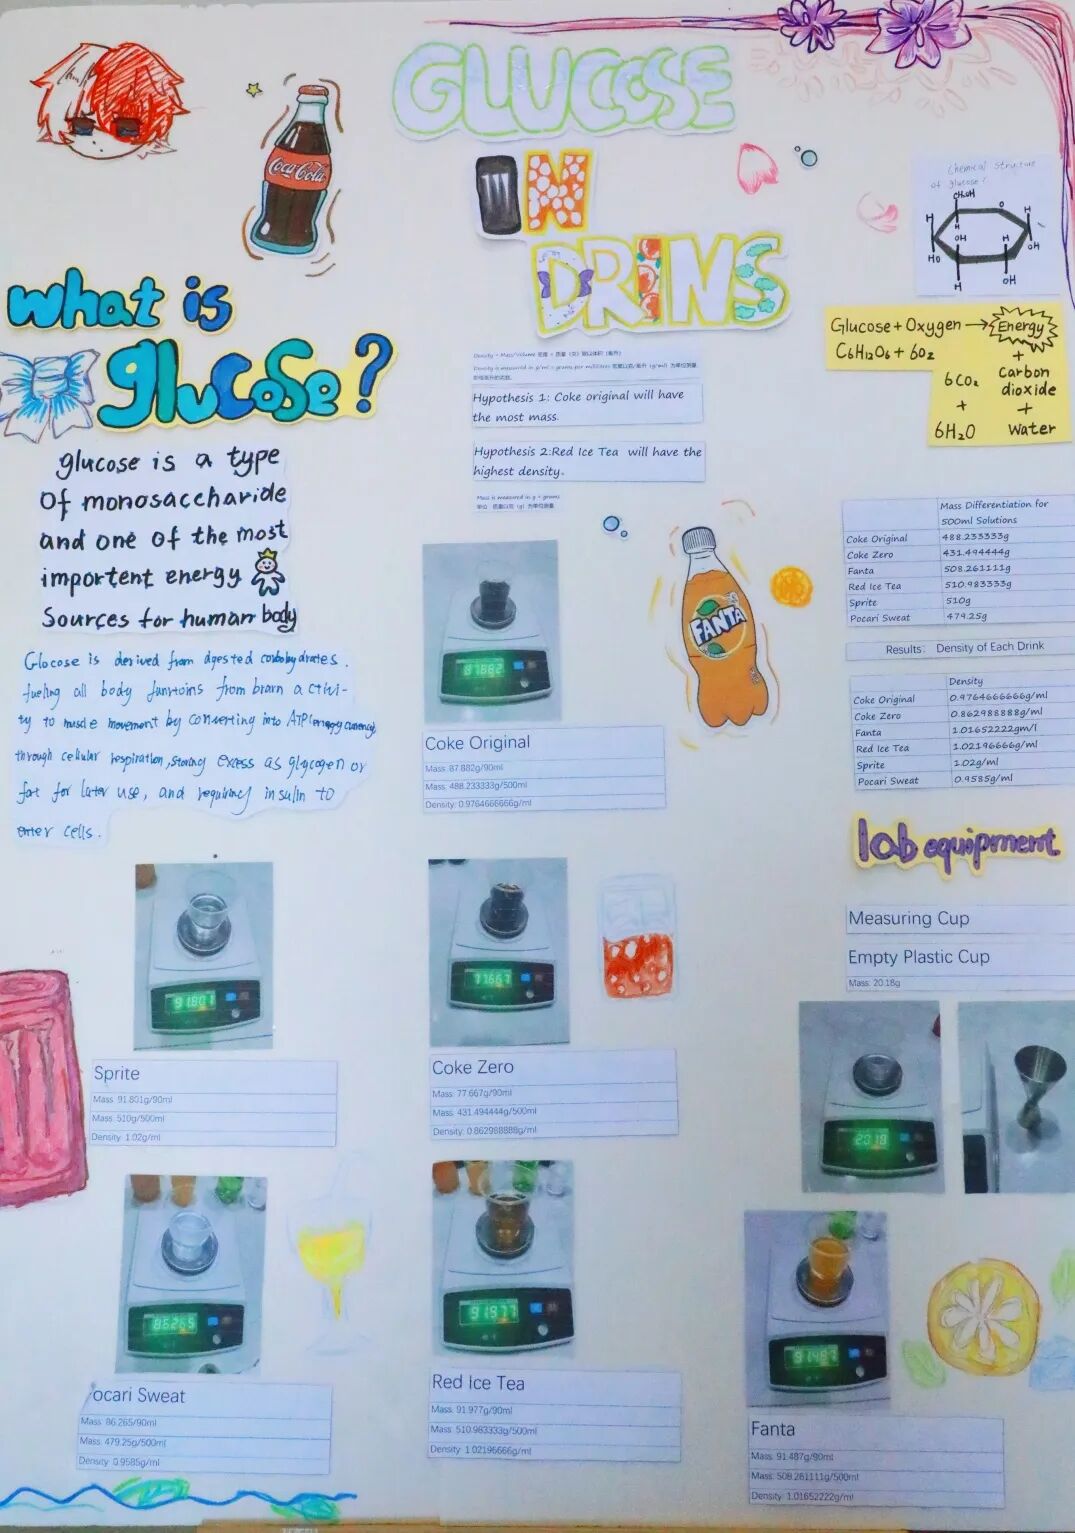 GLUCOSE
IN
DRINS
Coca-Cola
what is
glucose?
glucose is a type
of monosaccharide
and one of the most
importent energy
Sources for human body
Glocose is derived from dgested
fueling all body from brain a ctivi-
ty to muscle movement by converting into ATP(energy currency)
through cellular respiration, storing excess as glycogen or
fat for later use, and requiring insulin to
enter cells.
Density = Mass/Volume
Density is measured in g/ml = grams per milliliters
Hypothesis 1: Coke original will have
the most mass.
Hypothesis 2:Red Ice Tea will have the
highest density.
Mass is measured in g = grams
Chemical Structure
of glucose:
CH₂OH
O
H
H
H
OH
H
HO
OH
H
OH
Glucose+Oxygen → Energy
C6H12O6 + 6O2
+
6CO2
Carbon
dioxide
+
+
6H2O
Water
Mass Differentiation for
500ml Solutions
Coke Original 488.233333g
Coke Zero 431.494444g
Fanta 508.261111g
Red Ice Tea 510.983333g
Sprite 510g
Pocari Sweat 479.25g
Results: Density of Each Drink
Density
Coke Original 0.9764666666g/ml
Coke Zero 0.862988888g/ml
Fanta 1.01652222gm/l
Red Ice Tea 1.02196666g/ml
Sprite 1.02g/ml
Pocari Sweat 0.9585g/ml
FANTA
87.882
Coke Original
Mass: 87.882g/90ml
Mass: 488.233333g/500ml
Density: 0.9764666666g/ml
lab equipment
Measuring Cup
Empty Plastic Cup
Mass: 20.18g
20.18
91.801
Sprite
Mass: 91.801g/90ml
Mass: 510g/500ml
Density: 1.02g/ml
77.667
Coke Zero
Mass: 77.667g/90ml
Mass: 431.494444g/500ml
Density: 0.862988888g/ml
86.265
ocari Sweat
Mass: 86.265/90ml
Mass: 479.25g/500ml
Density: 0.9585g/ml
91.977
Red Ice Tea
Mass: 91.977g/90ml
Mass: 510.983333g/500ml
Density: 1.02196666g/ml
91.487
Fanta
Mass: 91.487g/90ml
Mass: 508.261111g/500ml
Density: 1.01652222g/ml